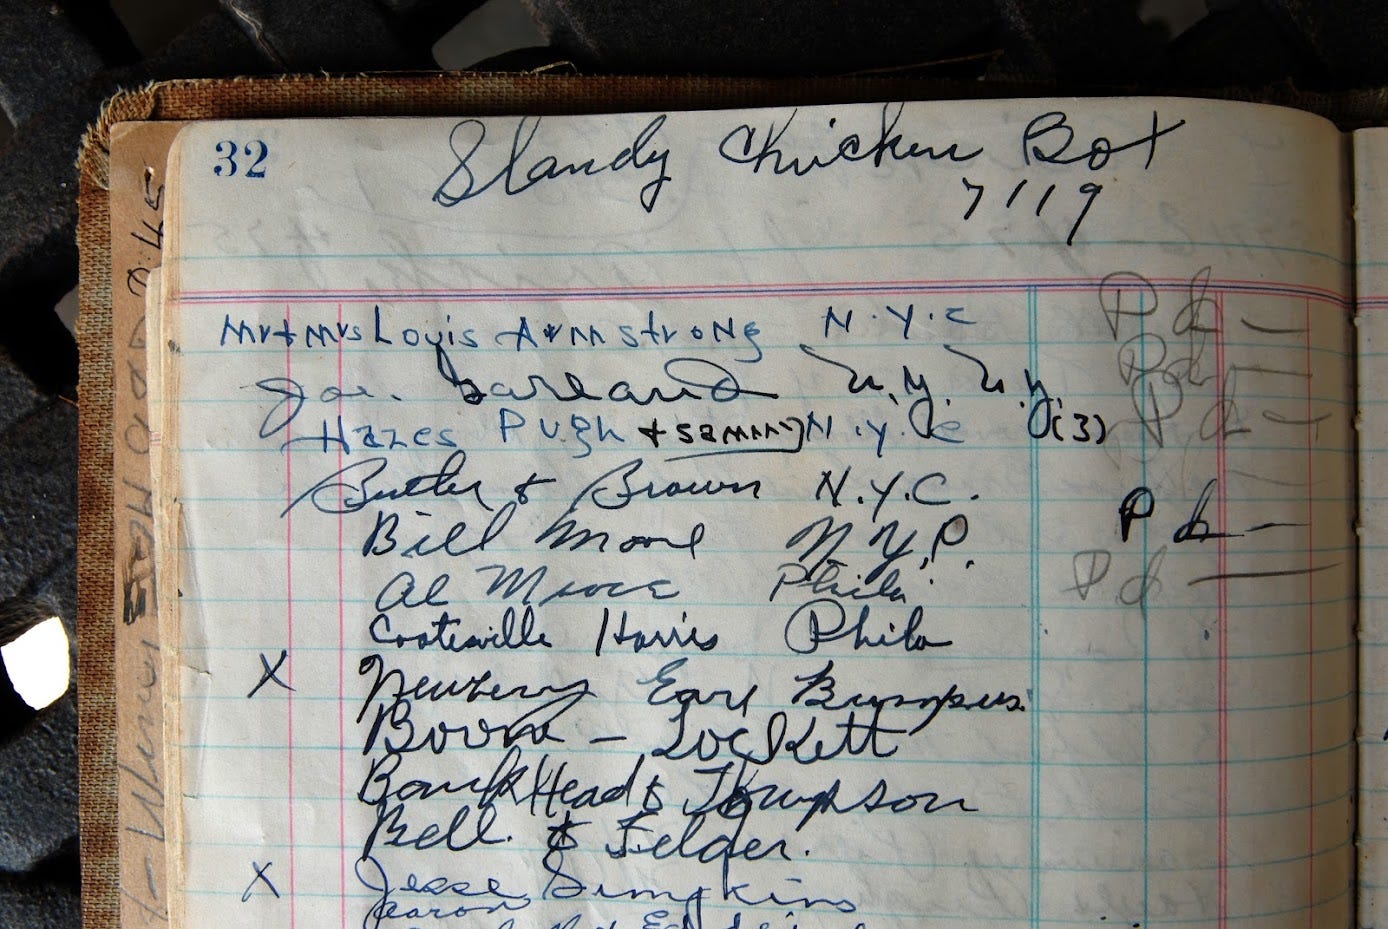 32
Slandy Chicken Box
7/19
Mr + Mrs Louis Armstrong N.Y.C Pd —
Joe. Garland N.Y. N.Y. Pd —
Hazes Pugh + Sammy N.Y.C (3) Pd —
Butler & Brown N.Y.C.
Bill Moore N.Y.P. Pd —
Al Moore Phila. Pd —
Coatesville Harris Phila
X Newberry Earl Bumpus.
Boone - Lockett
BankHead & Thompson
Bell. & Felder.
X Jesse Simpkins
Aaron